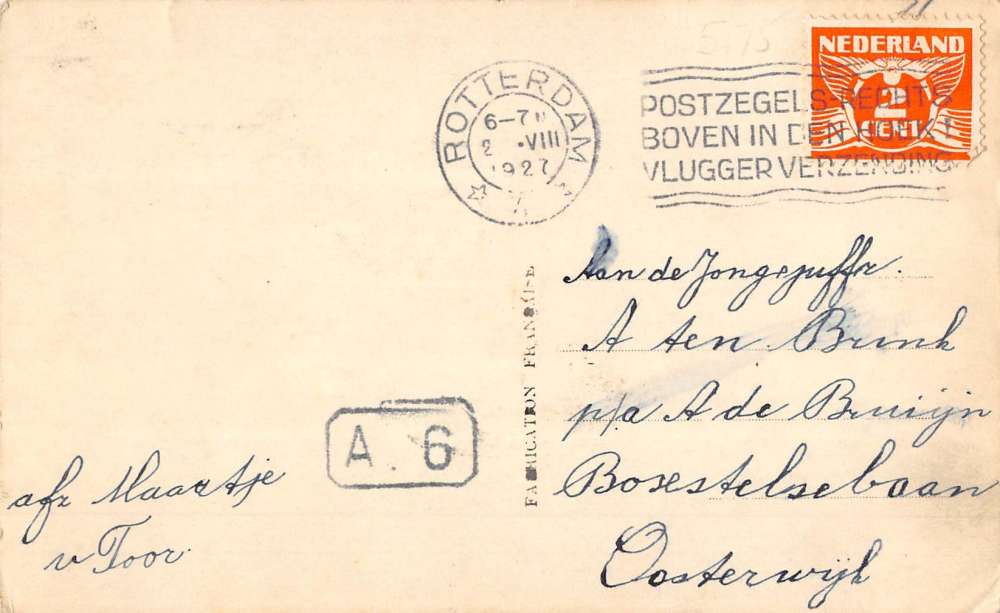 NEDERLAND
2
CENT
ROTTERDAM
6-7
2 .VIII
1927
POSTZEGELS-RECHTS
BOVEN IN DEN HOEK!
VLUGGER VERZENDING
Aan de Jongejuffr.
A ten Brink
p/a A de Bruijn
Boxestelsebaan
Oosterwijk
FABRICATION FRANÇAISE
A. 6
afz Maartje
v Toor.